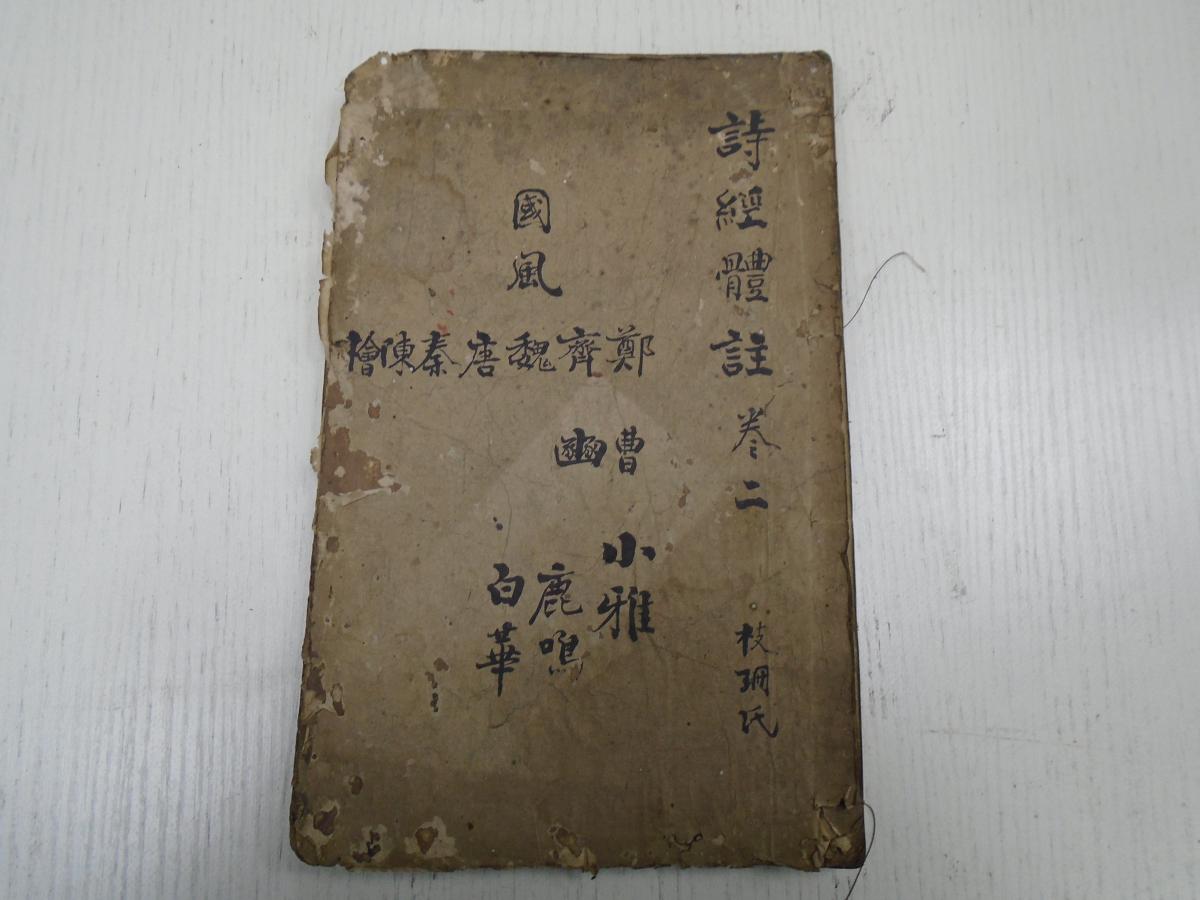 詩經體註 卷二 枝珊氏
國風
鄭齊魏唐秦陳檜
曹豳
小雅
鹿鳴
白華